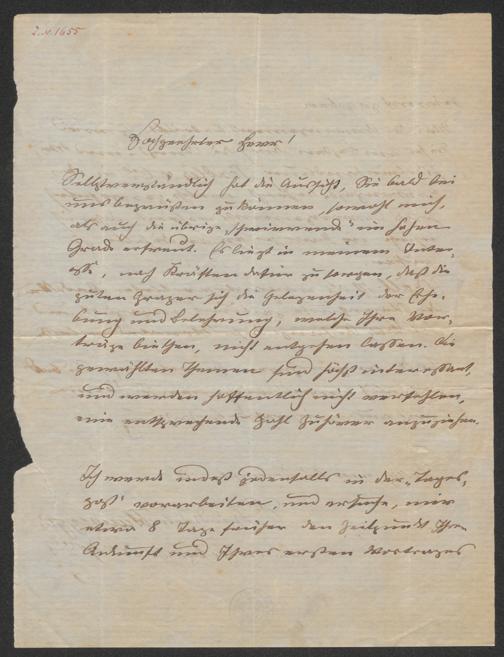 I. N. 1655
Hochgeehrter Herr!
Selbstverständlich hat die Aussicht, Sie bald bei
uns begrüßen zu können, sowohl mich,
als auch die übrige „ im hohen
Grade erfreut. Es liegt in meinem Inter-
esse, nach Kräften dafür zu sorgen, daß die
guten Grazer sich die Gelegenheit der Erhe-
bung und Belehrung, welche Ihre Vor-
träge biethen, nicht entgehen lassen. Die
gewählten Themen sind höchst interessant,
und werden hoffentlich nicht verfehlen,
eine entsprechende Zahl Zuhörer anzuziehen.
Ich werde indeß jedenfalls in der „Tages-
post" vorarbeiten, und ersuche, mir
etwa 8 Tage früher den Zeitpunkt Ihrer
Ankunft und Ihres ersten Vortrages